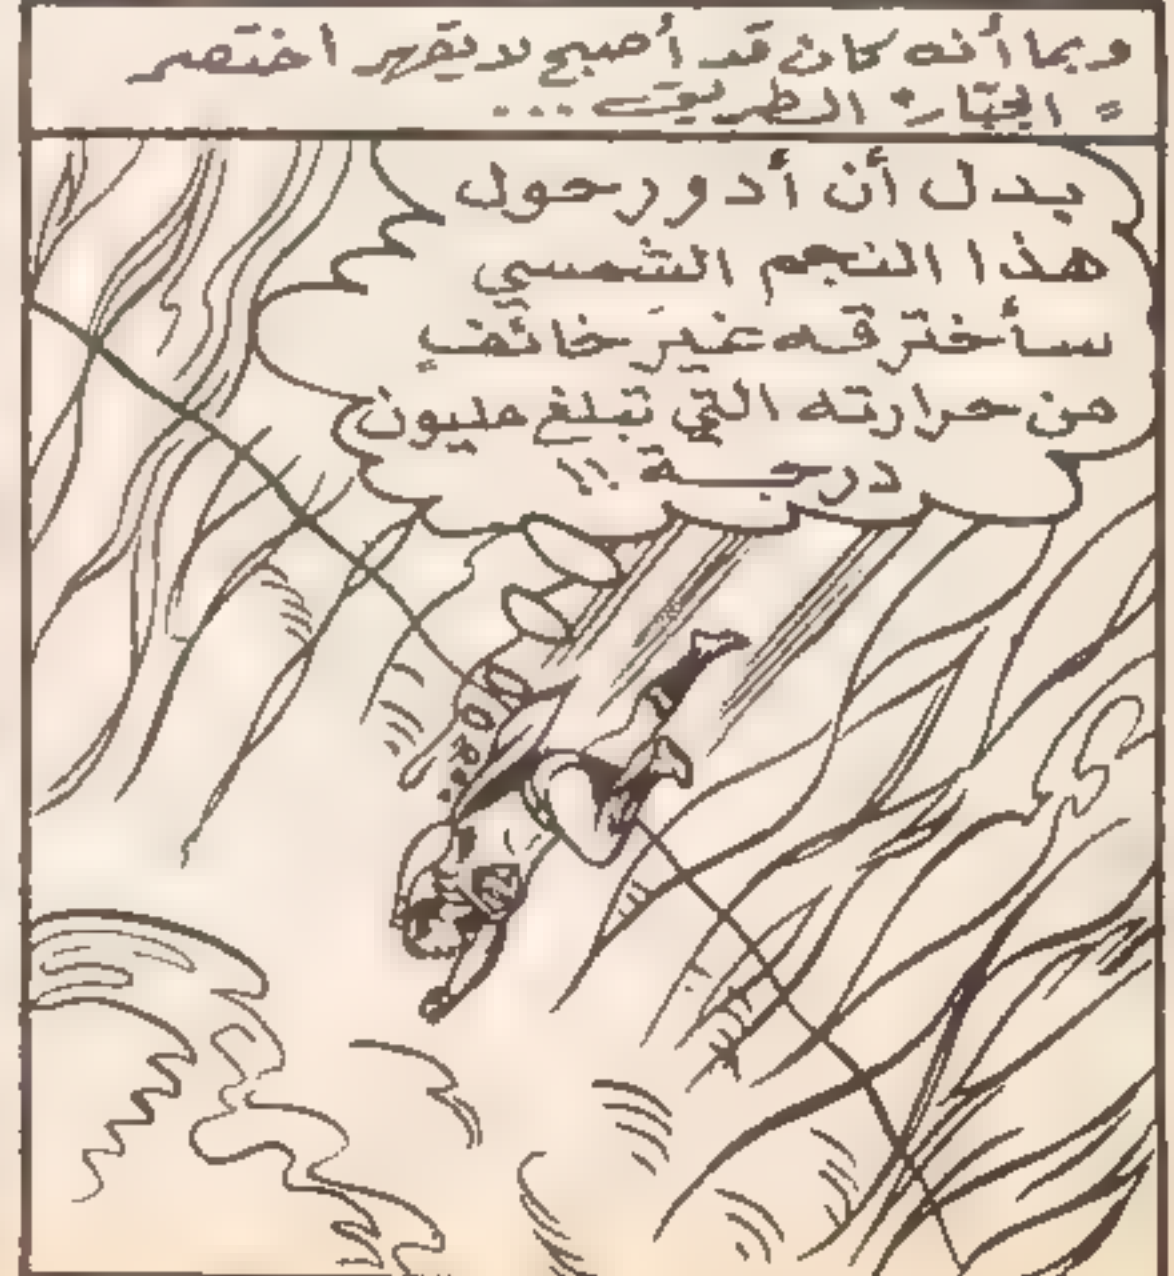 وبما أنه كان قد أصبح لا يقهر اختصر
= الجبّار = الطريق ...
بدل أن أدور حول
هذا النجم الشمسي
سأخترقه غيرَ خائفٍ
من حرارته التي تبلغ مليون
درجة !!